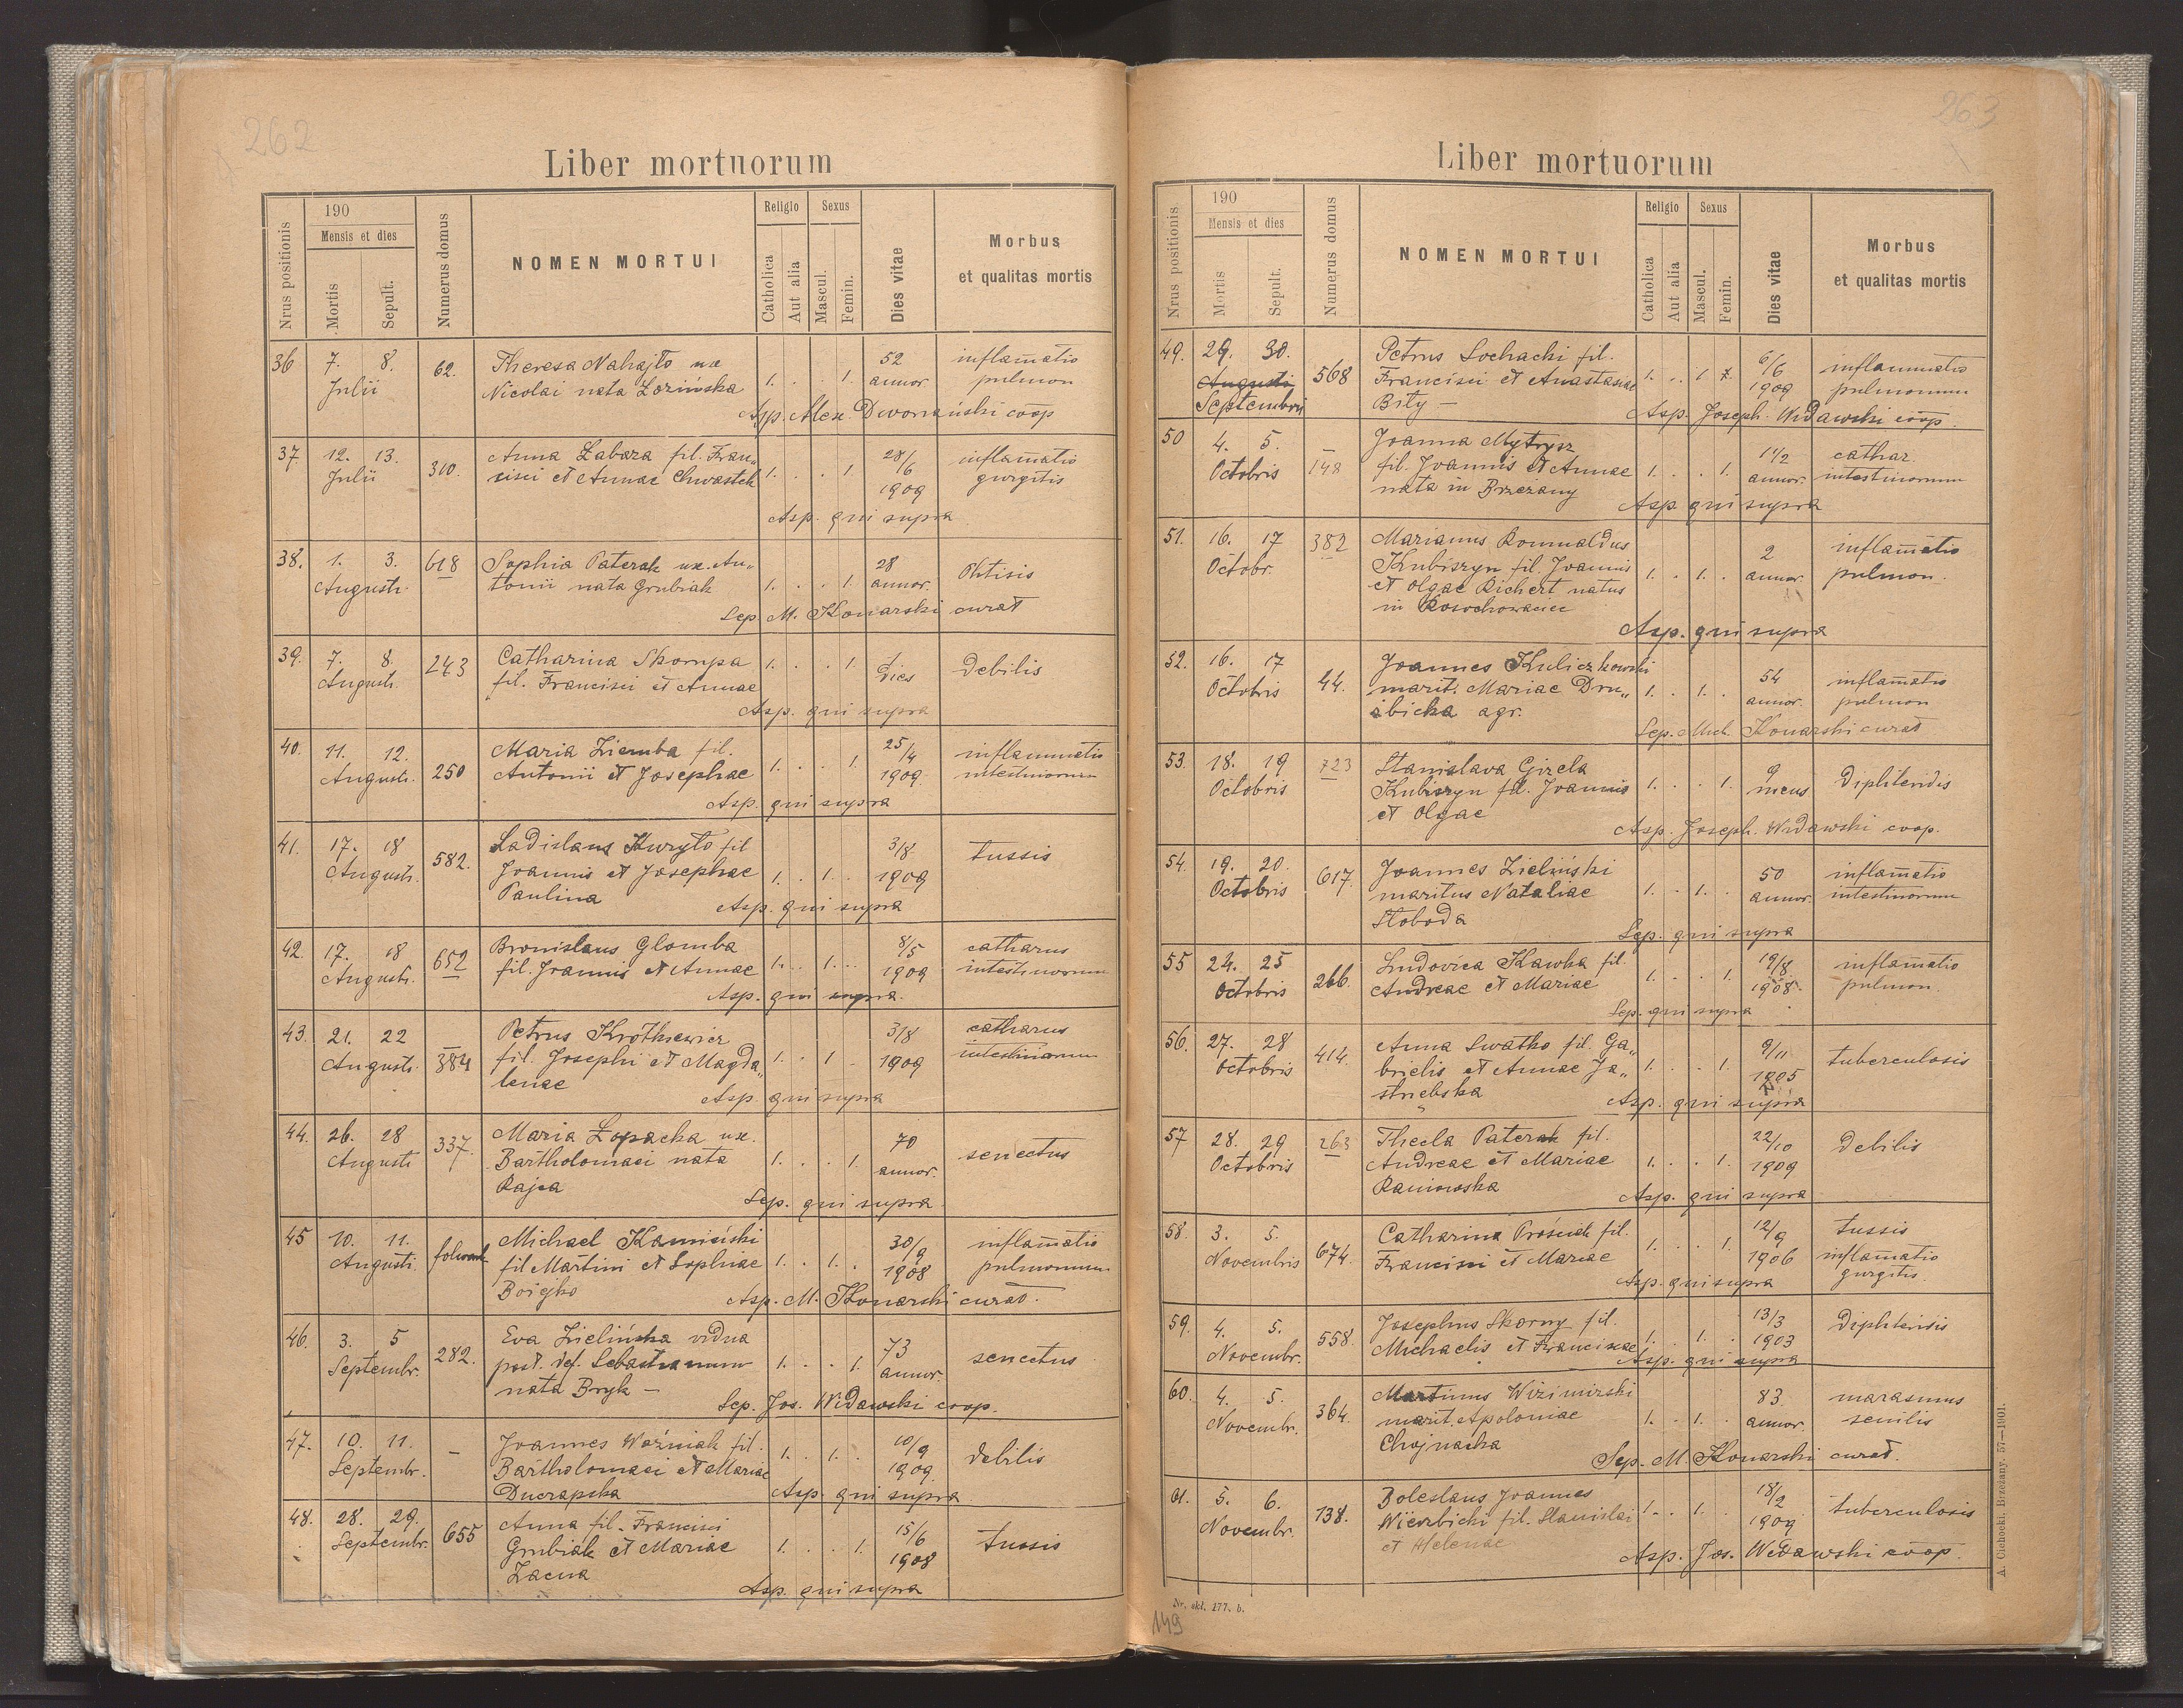 262
Liber mortuorum
Nrus positionis
190
Mensis et dies
Mortis
Sepult.
Numerus domus
NOMEN MORTUI
Religio
Catholica
Aut alia
Sexus
Mascul.
Femin.
Dies vitae
Morbus
et qualitas mortis
36 7. 8. 62. Theresa Nahajło ux 1. . . 1. 52 inflam̄atio
Julii Nicolai nata Łozińska annor. pulmon
Asp. Alex. Dworzański coop
37. 12. 13. 310. Anna Żabara fil. Fran„ 1. . . 1. 28/6 inflam̄atio
Julii cisci et Annae Chwastek 1909 gurgitis
Asp. qui supra
38. 1. 3. 618 Sophia Paterak ux. An„ 1. . . 1. 28 Phtisis
Augusti. tonii nata Grubiak annor.
Sep. M. Konarski curat
39. 7. 8. 243 Catharina Skompa 1. . . 1. dies debilis
Augusti. fil. Francisci et Annae
Asp. qui supra
40. 11. 12. 250 Maria Ziemba fil. 1. . . 1. 25/4 inflammatio
Augusti. Antonii et Josephae 1909. intestinorum
Asp. qui supra
41. 17. 18 582. Ladislaus Kuryło fil 1. . 1. . 3/8 tussis
Augusti. Joannis et Josephae 1909
Paulina
Asp. qui supra
42. 17. 18 652 Bronislaus Glomba 1. . 1. . 8/5 catharus
Augusti. fil. Joannis et Annae 1909 intestinorum
Asp. qui supra.
43. 21. 22 384 Petrus Krótkiewicz 1. . 1 . 3/8 catharus
Augusti. fil. Josephi et Magda„ 1909 intestinorum
lenae
Asp. qui supra
44. 26. 28 337. Maria Łopacka ux. 1. . . 1. 70 senectus
Augusti Bartholomaei nata annor.
Rajca
Sep. qui supra
45 10. 11. folwark Michael Kamiński 1. . 1. . 30/9 inflam̄atio
Augusti. fil Martini et Sophiae 1908 pulmonum
Bojko
Asp. M. Konarski curat.
46. 3. 5 282. Eva Zielińska vidua 1. . . 1. 73 senectus
Septembr. post. def. Sebastianum annor.
nata Bryk —
Sep. Jos. Widawski coop.
47. 10. 11. — Joannes Woźniak fil. 1. . 1. . 10/9 debilis
Septembr. Bartholomaei et Mariae 1909.
Ducrapska
Asp. qui supra
48. 28. 29. 655 Anna fil. Francisci 1. . . 1. 15/6 tussis
Septembr. Grubiak et Mariae 1908
Łacna
Asp. qui supra
263
Liber mortuorum
Nrus positionis
190
Mensis et dies
Mortis
Sepult.
Numerus domus
NOMEN MORTUI
Religio
Catholica
Aut alia
Sexus
Mascul.
Femin.
Dies vitae
Morbus
et qualitas mortis
49. 29. 30. 568 Petrus Sochacki fil. 1. . 1 6/6 inflammatio
Augusti Francisci et Anastasiae 1909 pulmonum
Septembris Bity —
Asp. Joseph. Widawski coop.
50 4. 5. 148 Joanna Mytrysz 1. . . 1. 1 1/2 cathar.
Octobris fil. Joannis et Annae annor. intestinorum
nata in Brzeżany
Asp. qui supra
51. 16. 17 382 Marianus Romualdus 1. . 1. . 2 inflam̄atio
Octobr. Kubiszyn fil. Joannis annor. pulmon.
et Olgae Richert natus
in Rosochowaciec
Asp. qui supra
52. 16. 17 44. Joannes Kuliczkowski 1. . 1. . 54 inflam̄atio
Octobris marit. Mariae Dru„ annor. pulmon
sbicka agr.
Sep. Mich. Konarski curat
53. 18. 19 723 Stanislava Gizela 1. . . 1. 9 Diphteridis
Octobris Kubiszyn fil. Joannis mens
et Olgae
Asp. Joseph. Widawski coop.
54. 19. 20. 617. Joannes Zieliński 1. . 1. . 50 inflam̄atio
Octobris maritus Nataliae annor. intestinorum
Słoboda
Sep. qui supra
55 24. 25 266. Ludovica Kawka fil. 1. . . 1. 19/8 inflam̄atio
Octobris Andreae et Mariae 1908. pulmon.
Sep. qui supra
56. 27. 28 414. Anna Swatko fil. Ga„ 1. . . 1. 9/11 tuberculosis
Octobris brielis et Annae Ja„ 1905
striebska
Asp. qui supra
57 28. 29 263 Thecla Paterak fil. 1. . . 1. 22/10 debilis
Octobris Andreae et Mariae 1909
Raniowska
Asp. qui supra
58. 3. 5. 674. Catharina Prósniak fil. 1. . . 1. 12/9 tussis
Novembris Francisci et Mariae 1906 inflam̄atio
gurgitis.
Asp. qui supra
59. 4. 5. 558. Josephus Skorny fil. 1. . 1. . 13/3 Diphterisis
Novembr. Michaelis et Franciscae 1903
Asp. qui supra
60. 4. 5. 364. Martinus Wizimirski 1. . 1. . 83. marasmus
Novembr. marit. Apoloniae annor. senilis
Chojnacka
Sep. M. Konarski curat.
61. 5. 6. 138. Boleslaus Joannes 1. . 1. . 18/2 tuberculosis
Novembr. Wierzbicki fil. Stanislai 1909
et Helenae
Asp. Jos. Widawski coop.
Nr. skł. 177. b.
149
A. Ciebocki. Brzeżany. 57—1901.